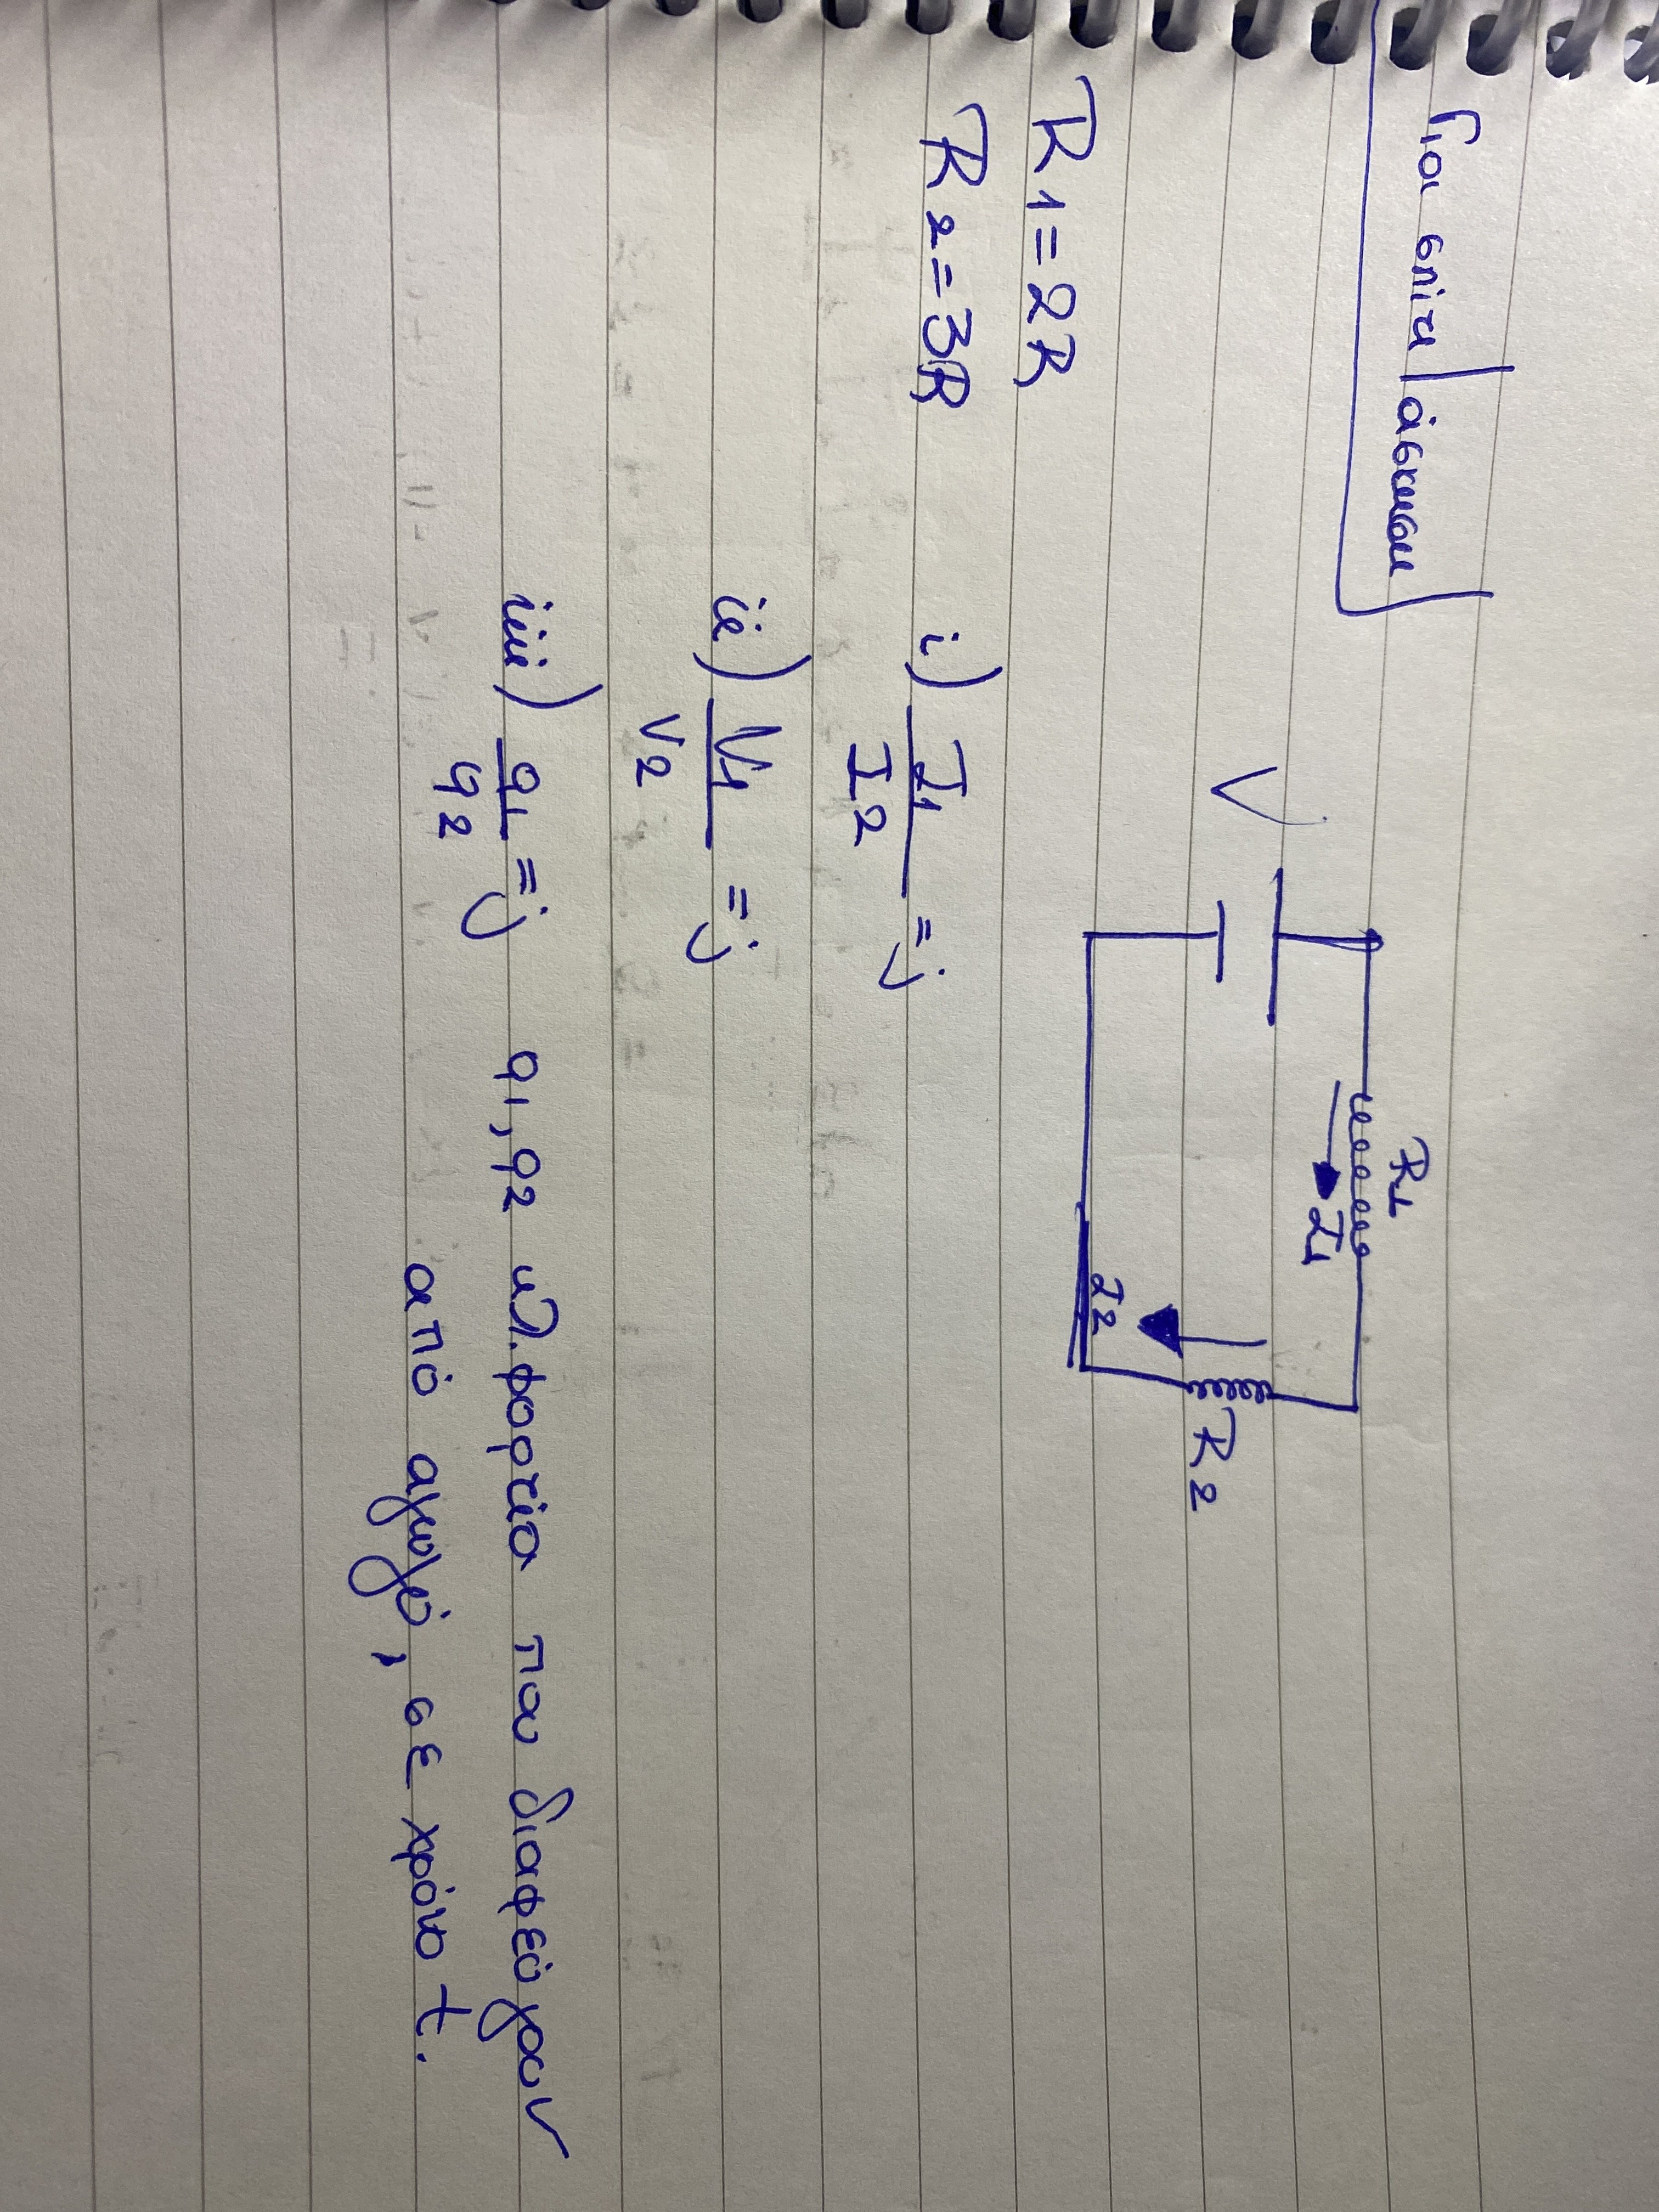 Για σπίτι | άσκηση
R1
I1
V
I2
R2
R1=2R
R2=3R
i) I1/I2 =;
ii) V1/V2 =;
iii) q1/q2 =; q1,q2 ηλ. φορτία που διαφεύγουν
από αγωγό, σε χρόνο t.